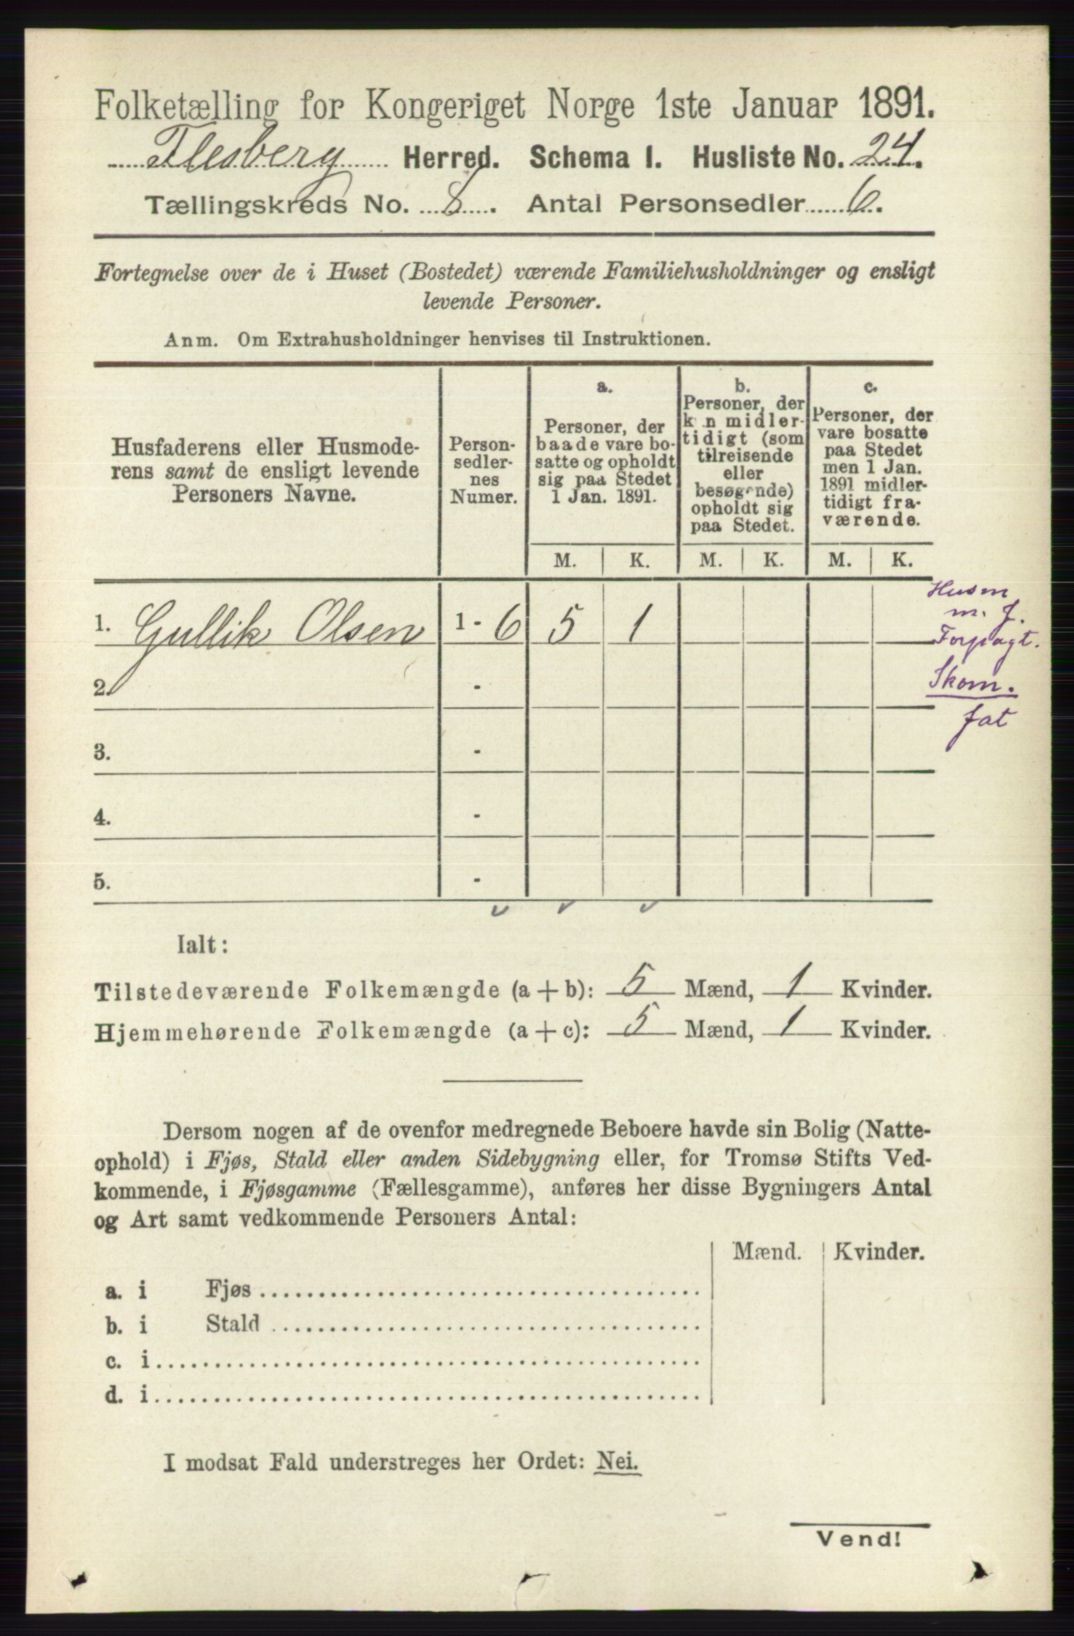 Folketælling for Kongeriget Norge 1ste Januar 1891.
Flesberg Herred. Schema I. Husliste No. 24.
Tællingskreds No. 8. Antal Personsedler 6.
Fortegnelse over de i Huset (Bostedet) værende Familiehusholdninger og ensligt
levende Personer.
Anm. Om Extrahusholdninger henvises til Instruktionen.
Husfaderens eller Husmode-
rens samt de ensligt levende
Personers Navne.
Person-
sedler-
nes
Numer.
a.
Personer, der
baade vare bo-
satte og opholdt
sig paa Stedet
1 Jan. 1891.
b.
Personer, der
kun midler-
tidigt (som
tilreisende
eller
besøgende)
opholdt sig
paa Stedet.
c.
Personer, der
vare bosatte
paa Stedet
men 1 Jan.
1891 midler-
tidigt fra-
værende.
M. K. M. K. M. K.
1. Gullik Olsen 1 - 6 5 1
Husm
m. J.
Forpagt.
Skom.
fat
2. -
3. -
4. -
5. -
Ialt:
Tilstedeværende Folkemængde (a + b): 5 Mænd, 1 Kvinder.
Hjemmehørende Folkemængde (a + c): 5 Mænd, 1 Kvinder.
Dersom nogen af de ovenfor medregnede Beboere havde sin Bolig (Natte-
ophold) i Fjøs, Stald eller anden Sidebygning eller, for Tromsø Stifts Ved-
kommende, i Fjøsgamme (Fællesgamme), anføres her disse Bygningers Antal
og Art samt vedkommende Personers Antal:
Mænd. Kvinder.
a. i Fjøs
b. i Stald
c. i
d. i
I modsat Fald understreges her Ordet: Nei.
Vend!